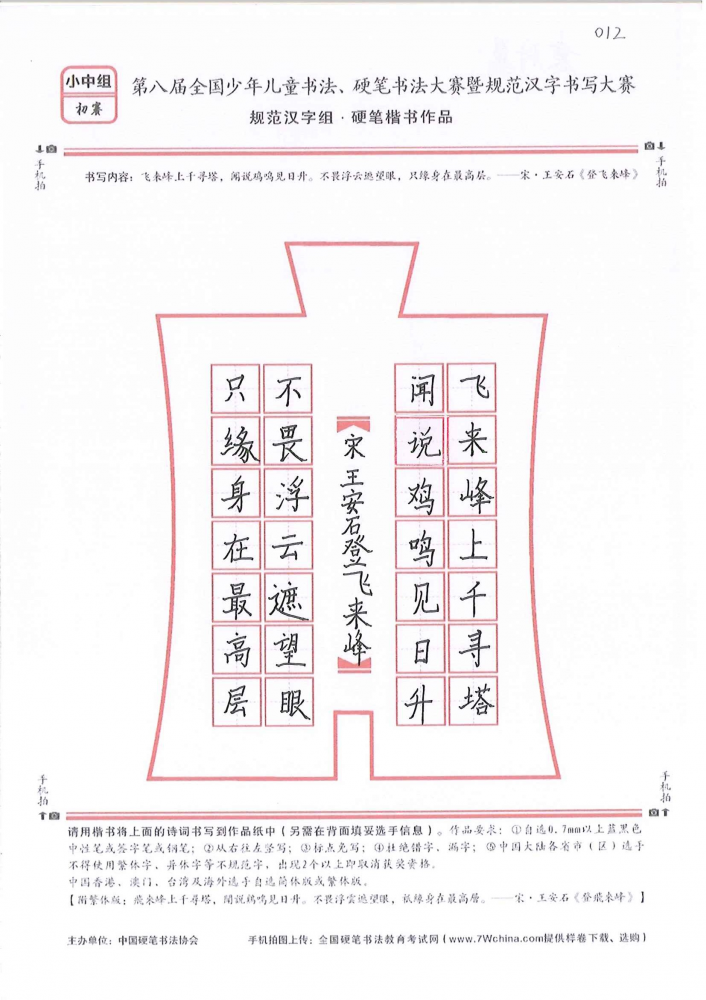 012
小中组
初赛
第八届全国少年儿童书法、硬笔书法大赛暨规范汉字书写大赛
规范汉字组·硬笔楷书作品
手机拍
手机拍
书写内容：飞来峰上千寻塔，闻说鸡鸣见日升。不畏浮云遮望眼，只缘身在最高层。——宋·王安石《登飞来峰》
飞来峰上千寻塔
闻说鸡鸣见日升
宋王安石登飞来峰
不畏浮云遮望眼
只缘身在最高层
手机拍
手机拍
请用楷书将上面的诗词书写到作品纸中（另需在背面填妥选手信息）。作品要求：①自选0.7mm以上蓝黑色
中性笔或签字笔或钢笔；②从右往左竖写；③标点免写；④杜绝错字、漏字；⑤中国大陆各省市（区）选手
不得使用繁体字、异体字等不规范字，出现2个以上即取消获奖资格。
中国香港、澳门、台湾及海外选手自选简体版或繁体版。
【附繁体版：飛來峰上千尋塔，聞說鷄鳴見日升。不畏浮雲遮望眼，祇緣身在最高層。——宋·王安石《登飛來峰》】
主办单位：中国硬笔书法协会
手机拍图上传：全国硬笔书法教育考试网（www.7Wchina.com提供样卷下载、选购）